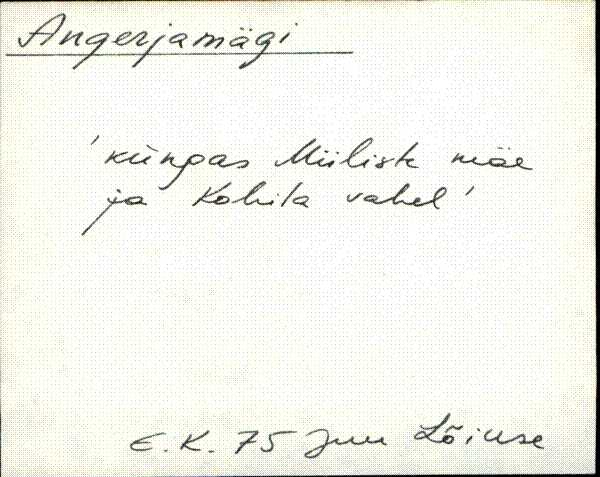 Angerjamägi
'küngas Miiliste mäe
ja Kohila vahel'
E.K. 75 Juu Lõiuse